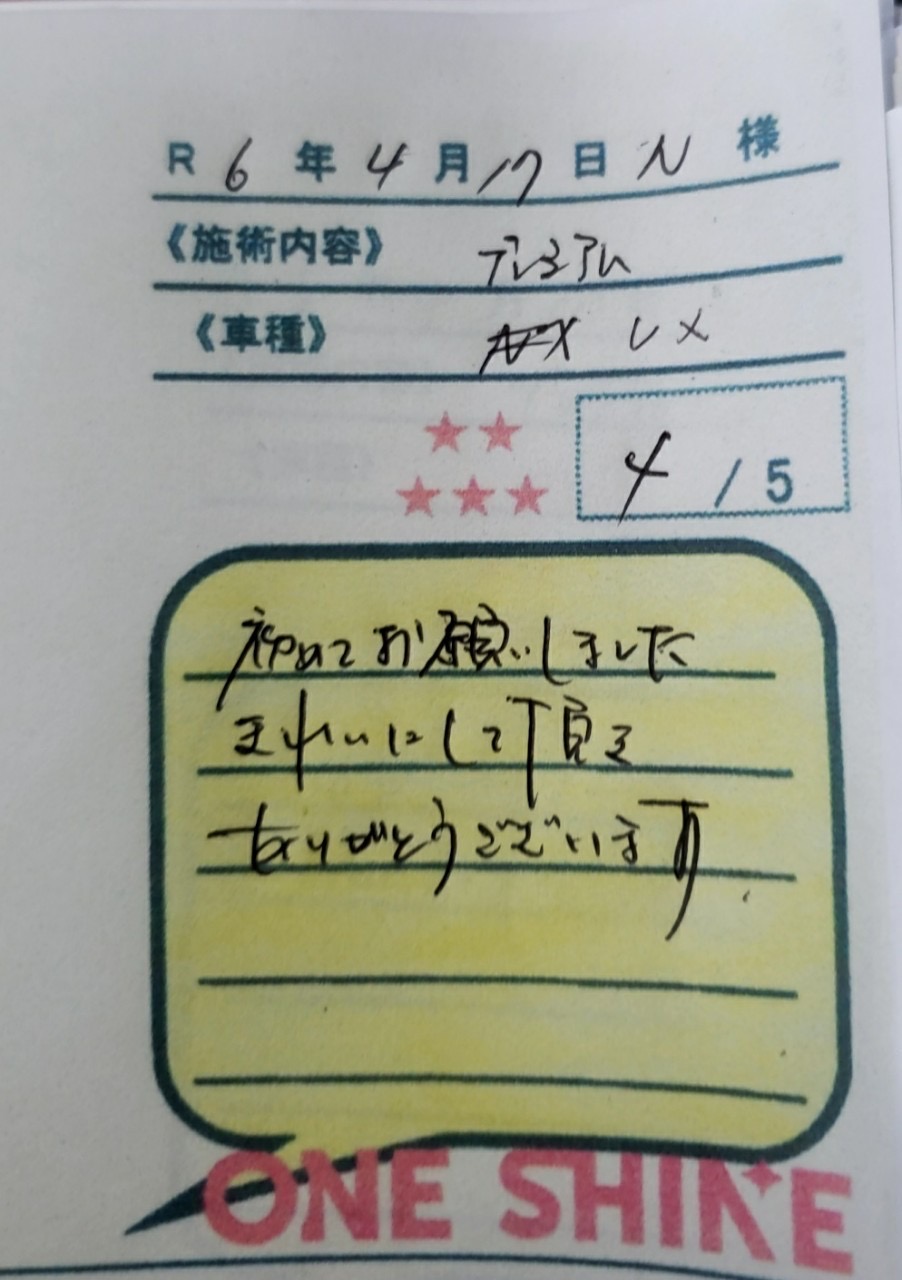 R 6 年 4 月 17 日 N 様
《施術内容》 プレミアム
《車種》 レX
4 / 5
初めてお願いしました
きれいにして頂き
ありがとうございます
ONE SHINE